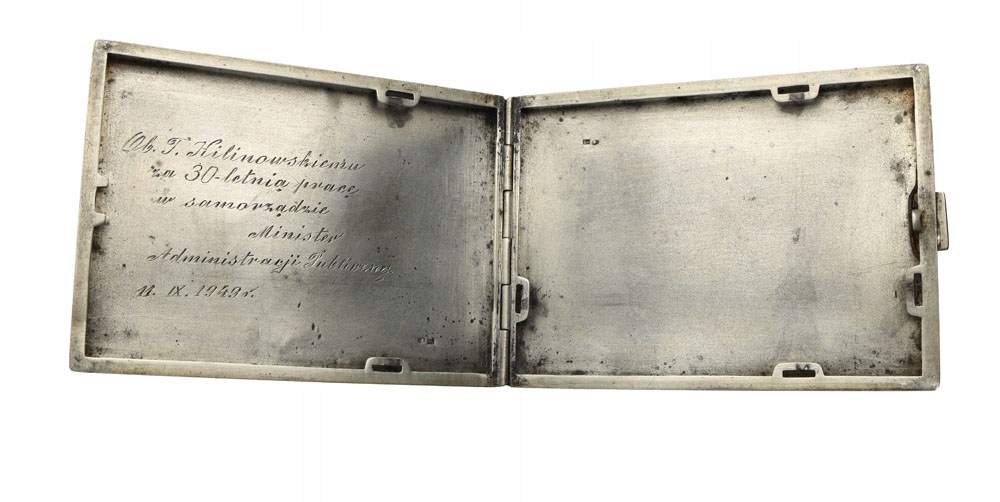 Ob. T. Kilinowskiemu
za 30-letnią pracę
w samorządzie
Minister
Administracji Publicznej
11. IX. 1949 r.